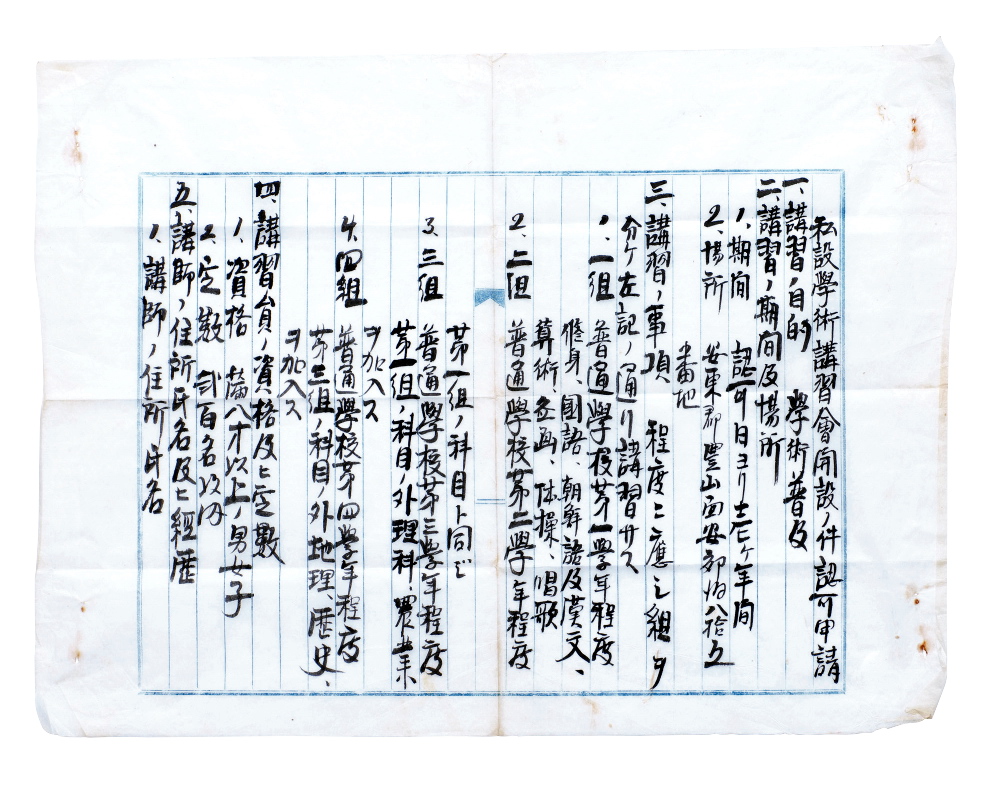 私設學術講習會開設ノ件認可申請
一、講習ノ目的 學術普及
二、講習ノ期間及場所
1、期間 認可日ヨリ 年間
2、場所 安東郡豐山面安郊洞八拾五
番地
三、講習ノ事項 程度ニ應シ組ヲ
分ケ左記ノ通リ講習サス
1、一組 普通學校第一學年程度
修身、國語、朝鮮語及漢文、
算術、圖画、体操、唱歌
2、二組 普通學校第二學年程度
第一組ノ科目ト同ジ
3、三組 普通學校第三學年程度
第一組ノ科目ノ外理科、農業
ヲ加入ス
4、四組 普通學校第四學年程度
第三組ノ科目ノ外地理、歴史、
ヲ加入ス
四、講習會員ノ資格及ヒ定數
1、資格 滿八才以上ノ男女子
2、定數 貳百名以内
五、講師ノ住所氏名及ヒ經歴
1、講師ノ住所氏名